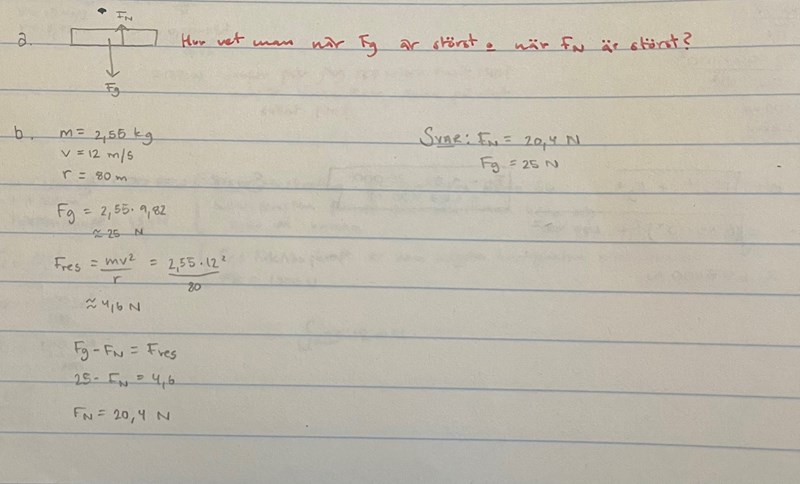 a.
F_N
Fg
Hur vet man när Fg är störst o när F_N är störst?
b.
m = 2,55 kg
v = 12 m/s
r = 80 m
Fg = 2,55 · 9,82
≈ 25 N
Fres = mv²/r = 2,55 · 12²/80
≈ 4,6 N
Fg - F_N = Fres
25 - F_N = 4,6
F_N = 20,4 N
SVAR: F_N = 20,4 N
Fg = 25 N